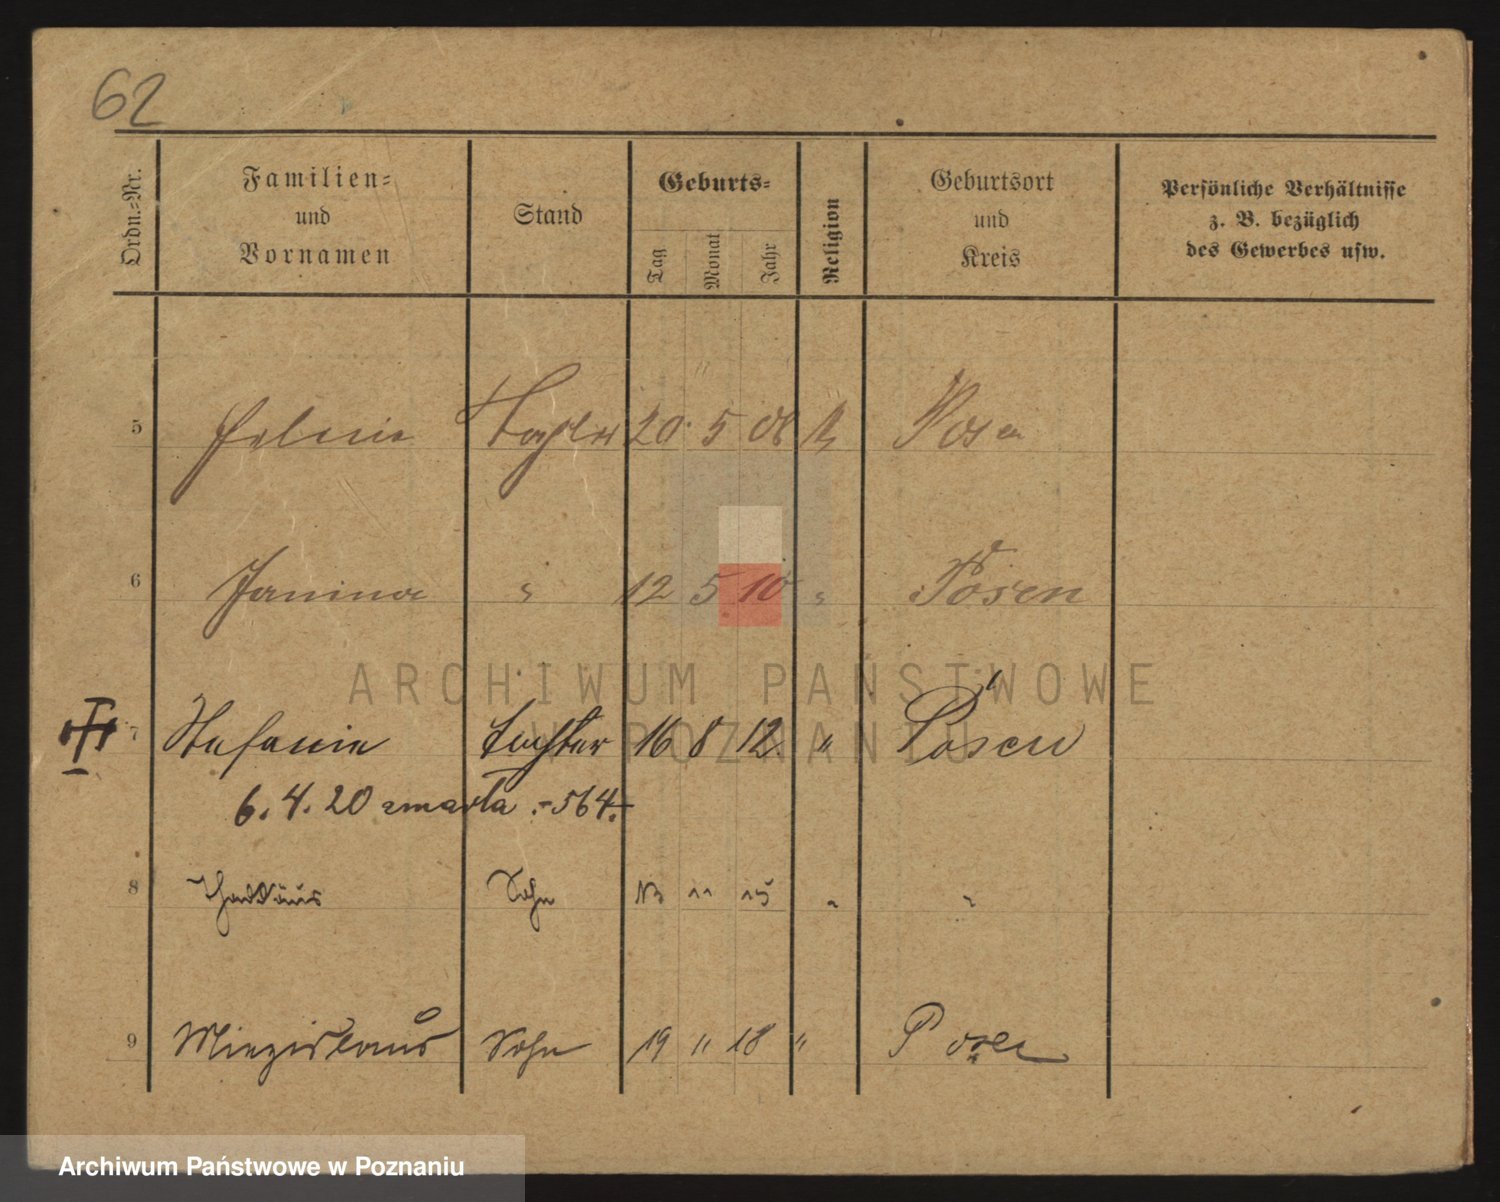 62
Ordn.-Nr. Familien- und Vornamen Stand Geburts- Tag Monat Jahr Religion Geburtsort und Kreis Persönliche Verhältnisse z. B. bezüglich des Gewerbes usw.
5 Tochter 20. 5 08 Posen
6 Janina " 12 5 10 " Posen
7 Stefanie Tochter 16 8 12. " Posen
6. 4. 20 zmarła .-564.-
8 Thaddäus Sohn 11 15 " "
9 Miezislaus Sohn 19 11 18 " Posen
ARCHIWUM PAŃSTWOWE
W POZNANIU
Archiwum Państwowe w Poznaniu